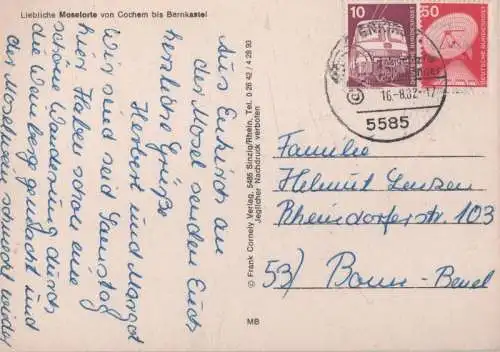 Liebliche Moselorte von Cochem bis Bernkastel
Aus Enkirch an
der Mosel senden Euch
herzliche Grüße
Herbert und Margot
Wir sind seit Samstag
hier. Haben schon eine
schöne Wanderung durch
die Weinberge gemacht und
der Moselwein schmeckt wieder
© Frank Cornely Verlag, 5485 Sinzig/Rhein, Tel. 0 26 42 / 4 29 93
Jeglicher Nachdruck verboten
MB
10
DEUTSCHE BUNDESPOST
50
DEUTSCHE BUNDESPOST
16.-8.82-17
5585
Familie
Helmut Lenzen
Rheindorferstr. 103
53/ Bonn-Beuel